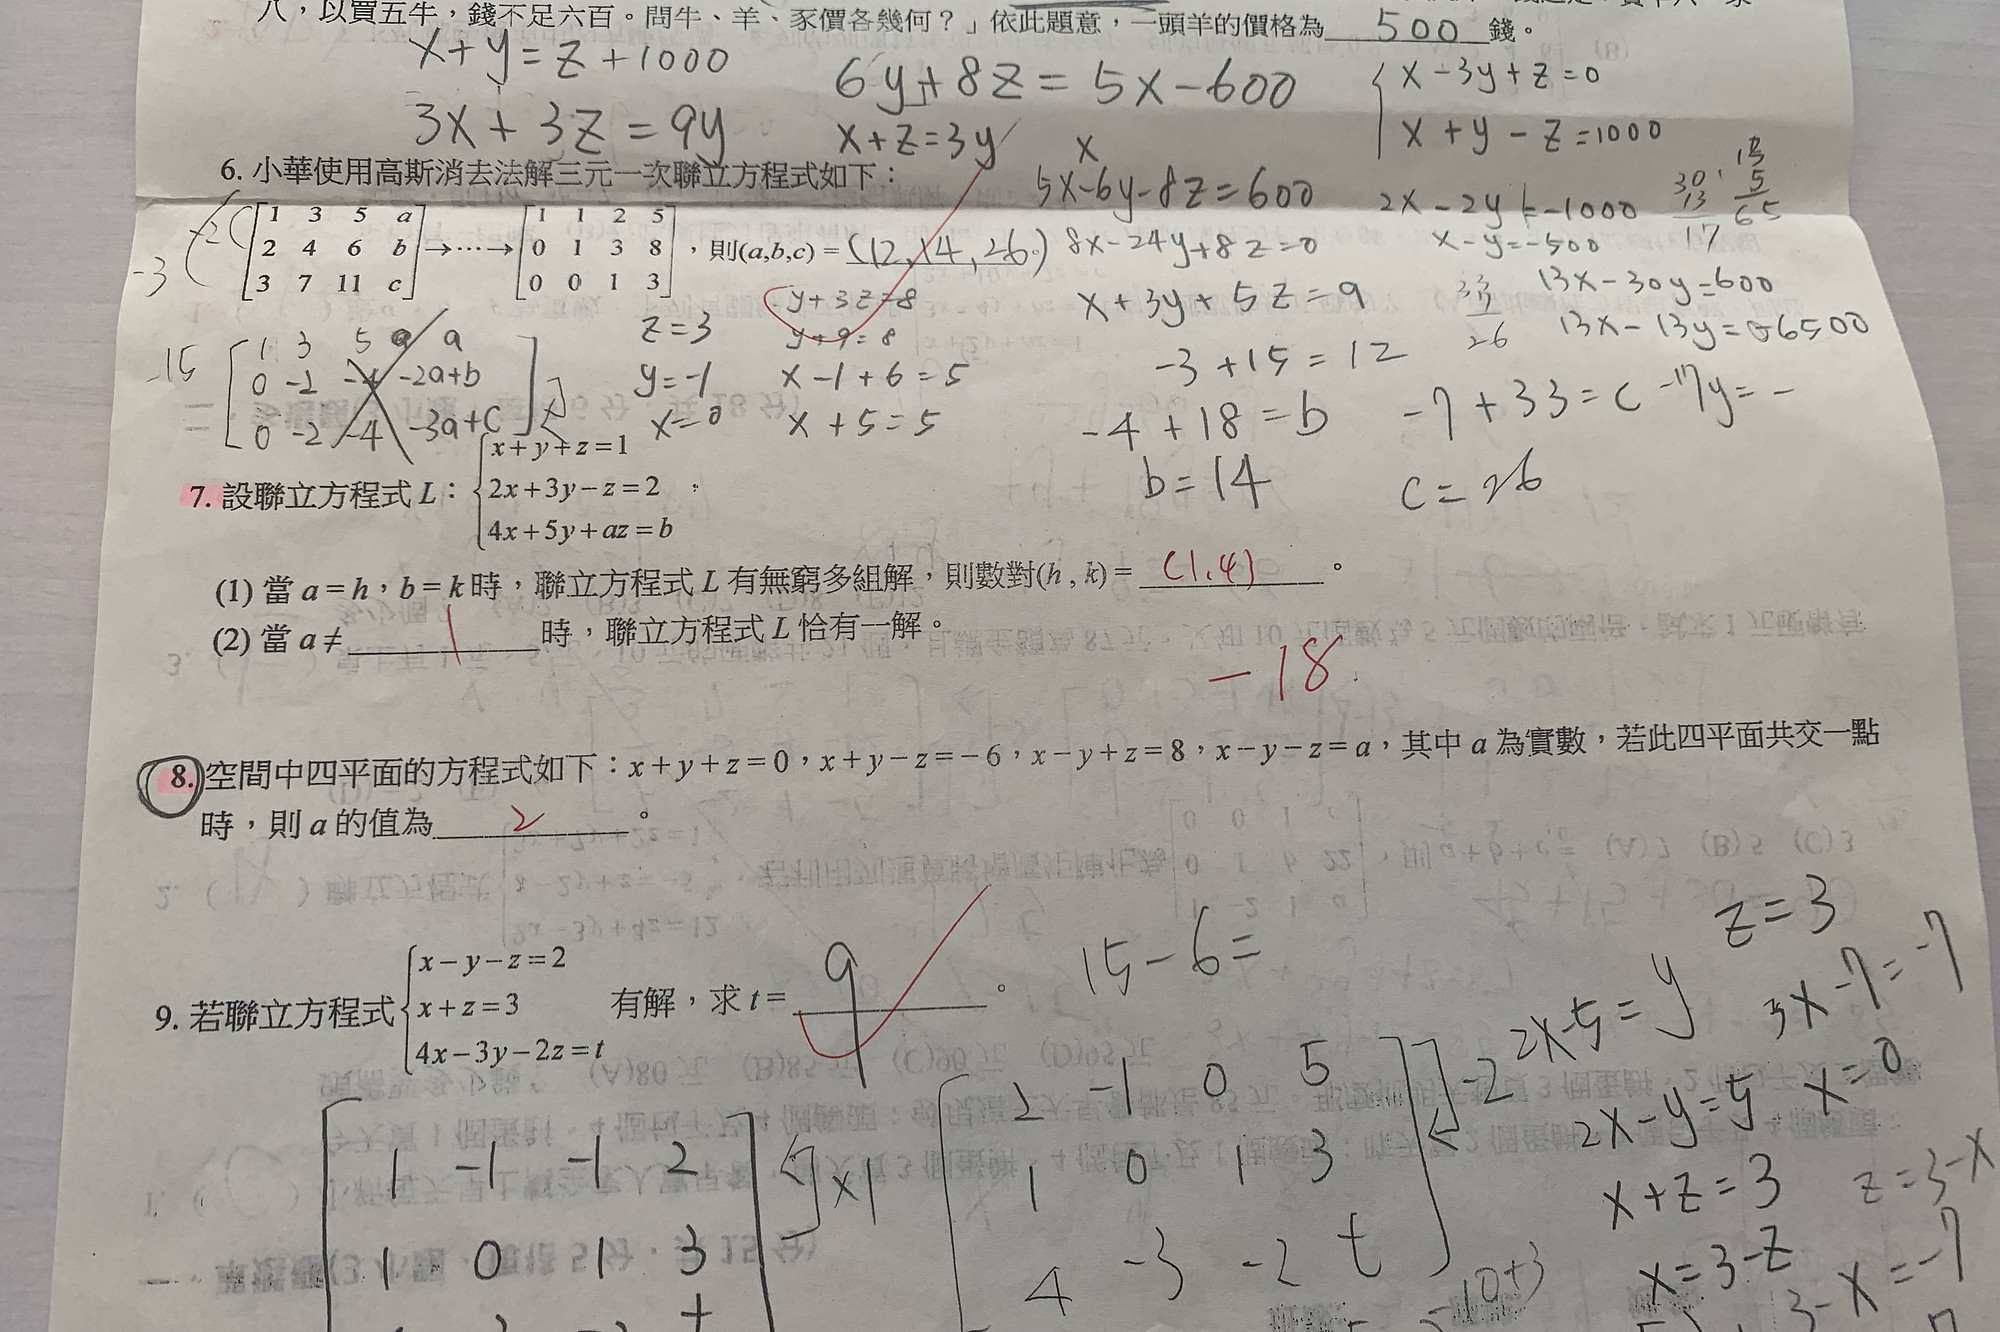 八，以買五牛，錢不足六百。問牛、羊、豕價各幾何？」依此題意，一頭羊的價格為 500 錢。
x+y=z+1000
6y+8z=5x-600
x-3y+z=0
3x+3z=9y
x+z=3y
x
x+y-z=1000
6. 小華使用高斯消去法解三元一次聯立方程式如下：
5x-6y-8z=600
2x-2y=-1000
30
13
17
13
5
65
-2
-3
[1 3 5 a
2 4 6 b
3 7 11 c] →⋯→ [1 1 2 5
0 1 3 8
0 0 1 3]，則(a,b,c) = (12,14,26)
8x-24y+8z=0
x-y=-500
y+3z=8
x+3y+5z=9
33
26
13x-30y=600
z=3
y+9=8
13x-13y=-6500
-15
1 3 5 a a
0 -2 -4 -2a+b
0 -2 -4 -3a+c
y=-1
x-1+6=5
-3+15=12
x=0
x+5=5
-4+18=b
-7+33=c
-17y=-
b=14
c=26
7. 設聯立方程式 L：{x+y+z=1
2x+3y-z=2，
4x+5y+az=b
(1) 當 a=h，b=k 時，聯立方程式 L 有無窮多組解，則數對(h, k)= (1,4)。
(2) 當 a≠ 1 時，聯立方程式 L 恰有一解。
-18.
8. 空間中四平面的方程式如下：x+y+z=0，x+y-z=-6，x-y+z=8，x-y-z=a，其中 a 為實數，若此四平面共交一點
時，則 a 的值為 2 。
9. 若聯立方程式{x-y-z=2
x+z=3
4x-3y-2z=t
有解，求 t= 9 。
15-6=
z=3
2x-5=y
3x-7=-7
1 -1 -1 2
1 0 1 3
x1
2 -1 0 5
1 0 1 3
4 -3 -2 t
-2
2x-y=5
x=0
x+z=3
z=3-x
x=3-z
-10+3
3-x=-7